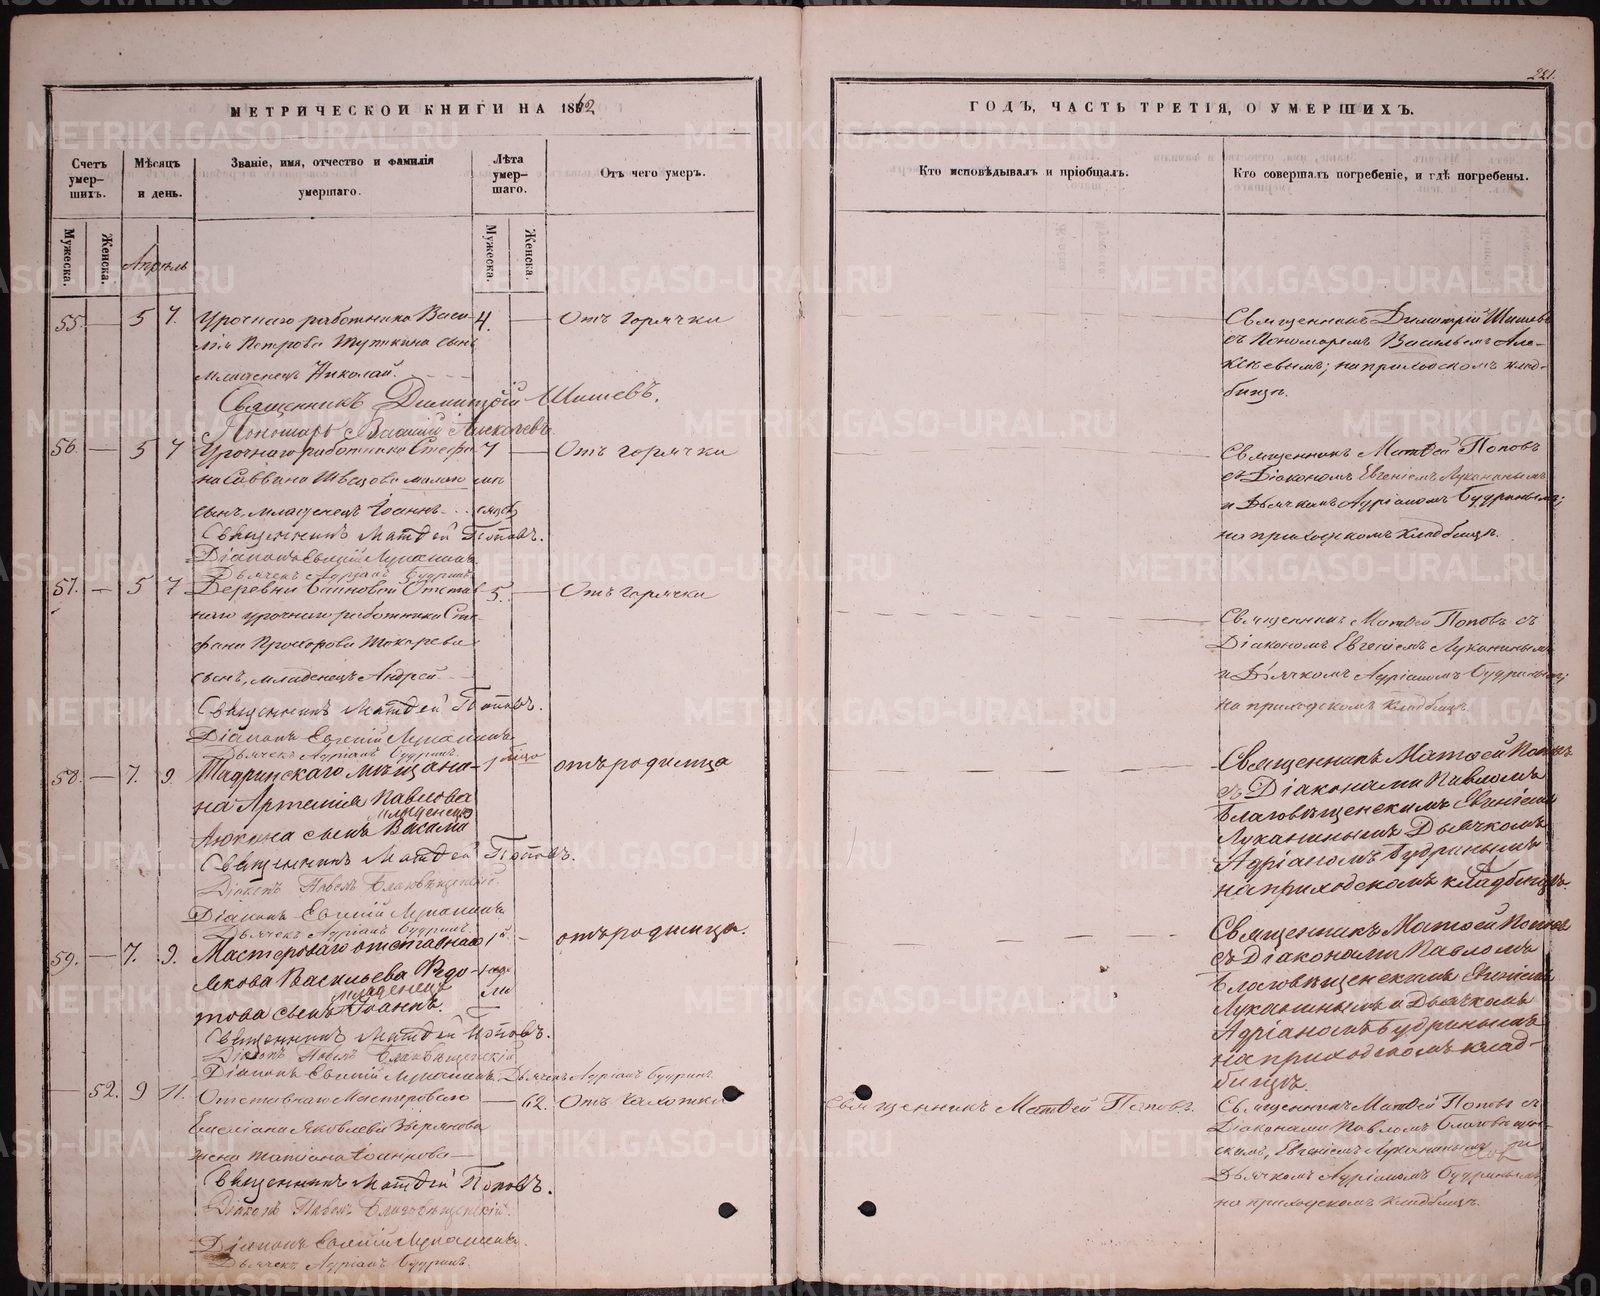 221.
МЕТРИЧЕСКОЙ КНИГИ НА 1862
ГОДЪ, ЧАСТЬ ТРЕТІЯ, О УМЕРШИХЪ.
Счетъ умер-шихъ.
Мѣсяцъ и день.
Званіе, имя, отчество и фамилія умершаго.
Лѣта умер-шаго.
Отъ чего умеръ.
Кто исповѣдывалъ и пріобщалъ.
Кто совершалъ погребеніе, и гдѣ погребены.
Мужеска.
Женска.
Мужеска.
Женска.
Апрѣль
55. 5 7. Урочнаго работника Васи- 4. Отъ горячки
лія Петрова сынъ
младенецъ Николай.
Священникъ Димитрій Шишевъ
съ Пономаремъ Васильемъ Але-
ксѣевымъ; на приходскомъ клад-
бищѣ.
Священникъ Димитрій Шишевъ.
Пономарь Василій Алексѣевъ
56. 5 7 Урочнаго работника Стефа- 7 Отъ горячки
на Саввина Швецова
сынъ младенецъ Іоаннъ
Священникъ Матѳей Поповъ
съ Діакономъ Евгеніемъ Луканинымъ
и Дьячкомъ Адріаномъ Будринымъ;
на приходскомъ кладбищѣ.
Священникъ Матѳей Поповъ.
Діаконъ Евгеній Луканинъ
Дьячекъ Адріанъ Будринъ
57. 5 7 Деревни Отстав- 5. Отъ горячки
наго урочнаго работника Сте-
фана Прохорова Токарева
сынъ, младенецъ Андрей
Священникъ Матѳей Поповъ съ
Діакономъ Евгеніемъ Луканинымъ
и Дьячкомъ Адріаномъ Будринымъ;
на приходскомъ кладбищѣ.
Священникъ Матѳей Поповъ.
Діаконъ Евгеній Луканинъ
Дьячекъ Адріанъ Будринъ.
58. 7. 9. Шадринскаго мѣщани- 1 отъ родимца
на Артемія Павлова
младенецъ
сынъ
Священникъ Матѳей Поповъ
съ Діаконами Павломъ
Благовѣщенскимъ Евгеніемъ
Луканинымъ Дьячкомъ
Адріаномъ Будринымъ
на приходскомъ кладбищѣ.
Священникъ Матѳей Поповъ.
Діаконъ Павелъ Благовѣщенскій.
Діаконъ Евгеній Луканинъ
Дьячекъ Адріанъ Будринъ.
59. 7. 9. Мастероваго отставнаго отъ родимца.
Якова Васильева Ѳедо-
младенецъ
това сынъ Іоаннъ.
Священникъ Матѳей Поповъ
съ Діаконами Павломъ
Благовѣщенскимъ Евгеніемъ
Луканинымъ и Дьячкомъ
Адріаномъ Будринымъ
на приходскомъ клад-
бищѣ.
Священникъ Матѳей Поповъ.
Діаконъ Павелъ Благовѣщенскій
Діаконъ Евгеній Луканинъ. Дьячекъ Адріанъ Будринъ.
52. 9 11. Отставнаго Мастероваго 62. Отъ чахотки
Емеліана Яковлева Зырянова
жена Татіана Іоаннова
Священникъ Матѳей Поповъ.
Священникъ Матѳей Поповъ съ
Діаконами Павломъ Благовѣщен-
скимъ, Евгеніемъ Луканинымъ и
Дьячкомъ Адріаномъ Будринымъ
на приходскомъ кладбищѣ.
Священникъ Матѳей Поповъ.
Діаконъ Павелъ Благовѣщенскій.
Діаконъ Евгеній Луканинъ.
Дьячекъ Адріанъ Будринъ.
METRIKI.GASO-URAL.RU